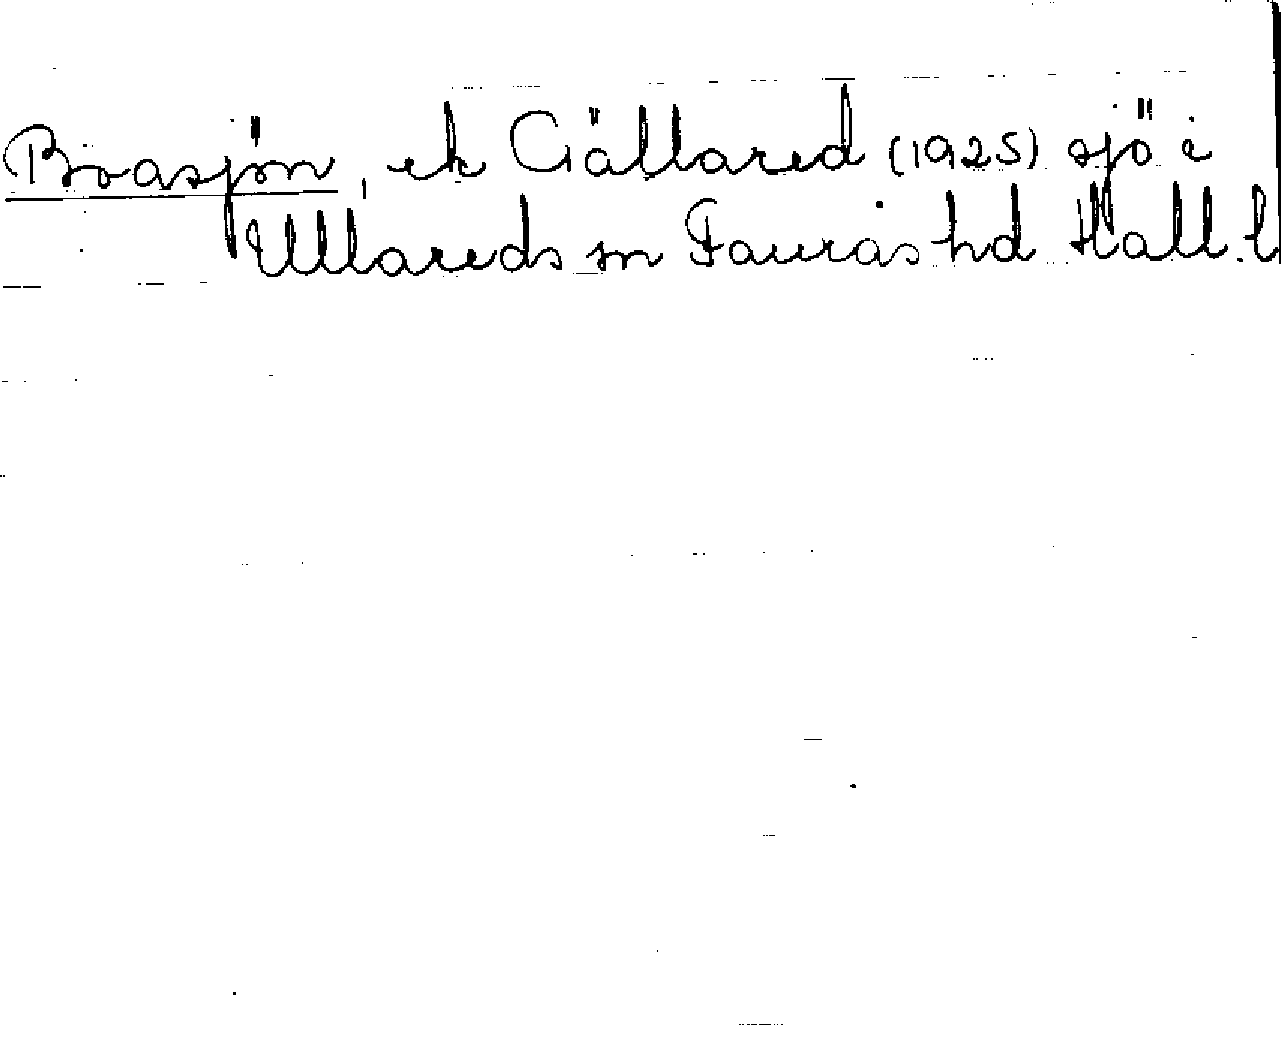 Boasjön, ek Gällared (1925) sjö i
Ullareds sn Faurås hd Hall. l